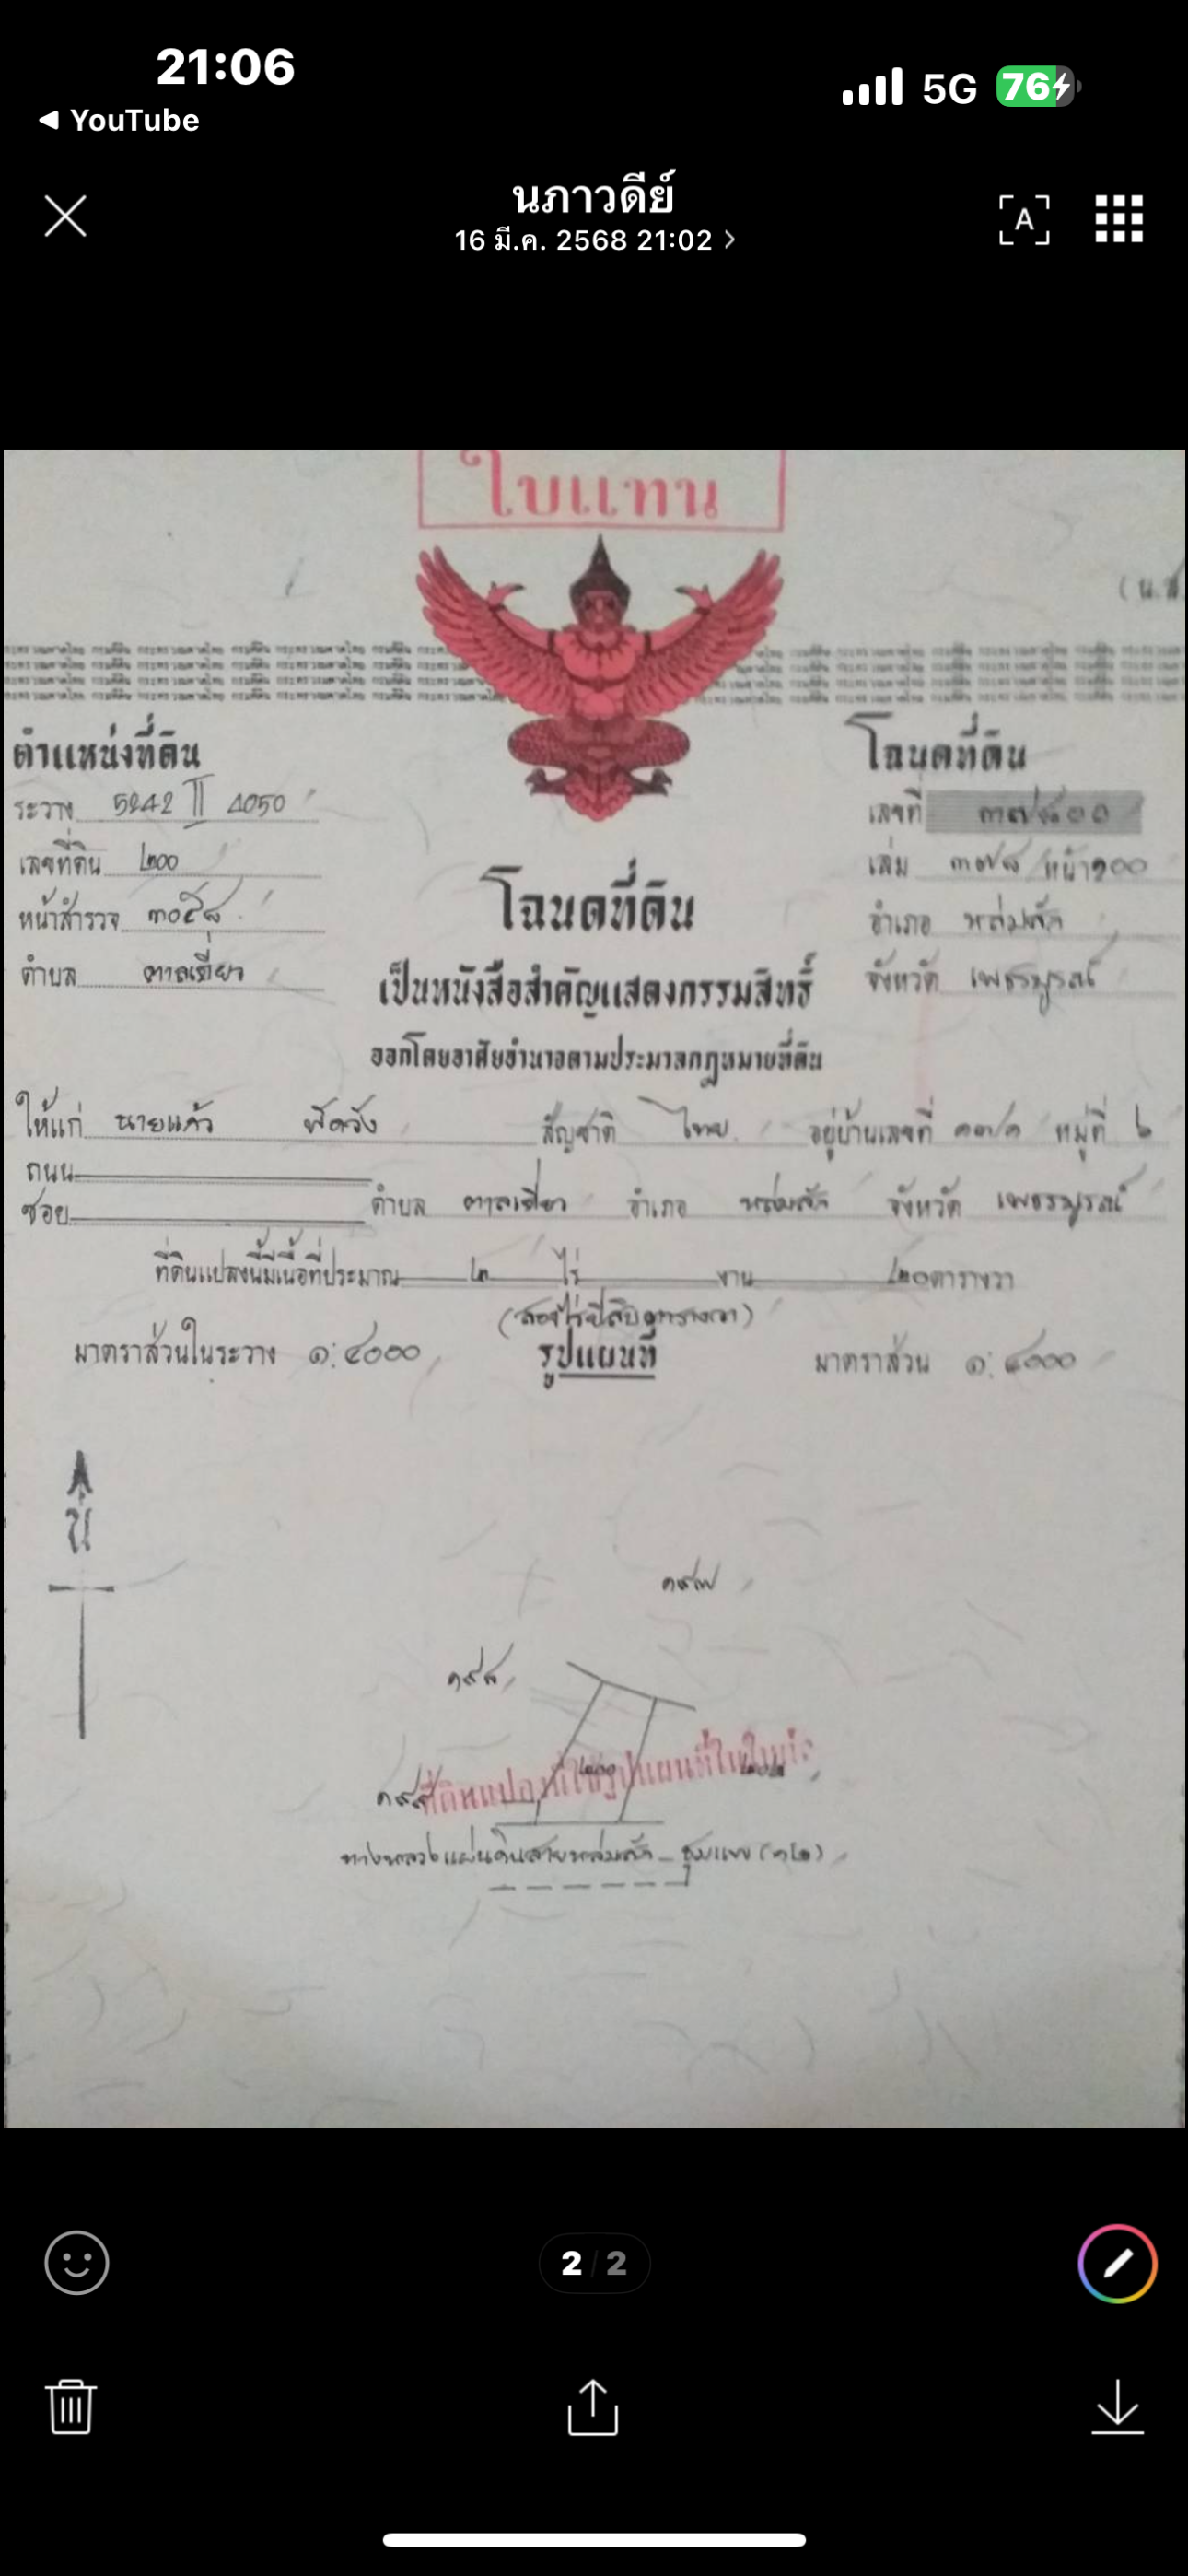 21:06
5G 76
◀ YouTube
นภาวดีย์
16 มี.ค. 2568 21:02 >
ใบแทน
(น.ส
ตำแหน่งที่ดิน
ระวาง 5242 II 4050
เลขที่ดิน ๒๐๐
หน้าสำรวจ ๓๐๕๘
ตำบล ตาลเดี่ยว
โฉนดที่ดิน
เลขที่
เล่ม ๓๗๘ หน้า ๑๐๐
อำเภอ หล่มสัก
จังหวัด เพชรบูรณ์
โฉนดที่ดิน
เป็นหนังสือสำคัญแสดงกรรมสิทธิ์
ออกโดยอาศัยอำนาจตามประมวลกฎหมายที่ดิน
ให้แก่ นายแก้ว สัญชาติ ไทย อยู่บ้านเลขที่ หมู่ที่ ๖
ถนน
ซอย ตำบล ตาลเดี่ยว อำเภอ หล่มสัก จังหวัด เพชรบูรณ์
ที่ดินแปลงนี้มีเนื้อที่ประมาณ ๒ ไร่ งาน ๒๐ ตารางวา
(สองไร่ยี่สิบตารางวา)
มาตราส่วนในระวาง ๑:๔๐๐๐ รูปแผนที่ มาตราส่วน ๑:๔๐๐๐
น
๑๙๗
๑๙๘
๒๐๐
๑๙๙
ทางหลวงแผ่นดินสายหล่มสัก - ชุมแพ (๑๒)
2 / 2